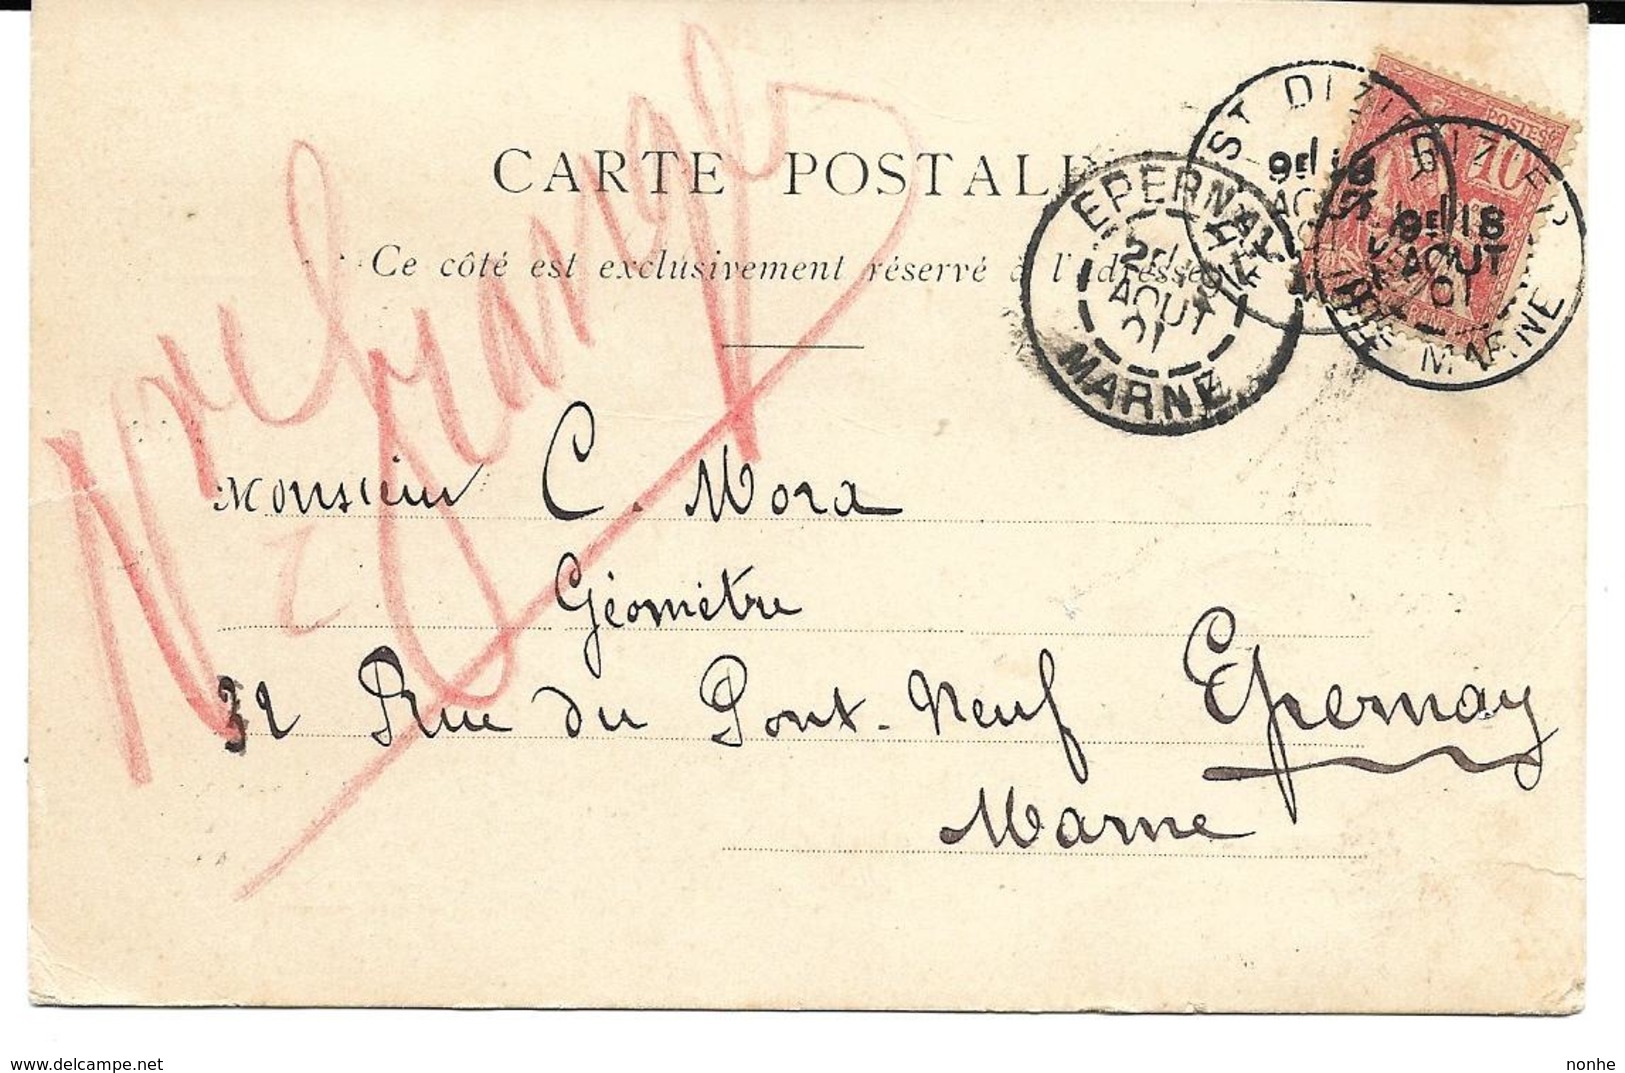 CARTE POSTALE
Ce côté est exclusivement réservé à l'adresse
ST DIZIER
9E 18
AOUT
01
HTE MARNE
POSTES
10
ST DIZIER
9E 18
AOUT
01
HTE MARNE
EPERNAY
2E 19
AOUT
01
MARNE
Monsieur C. Mora
Géomètre
32 Rue du Pont-Neuf Epernay
Marne
www.delcampe.net
nonhe